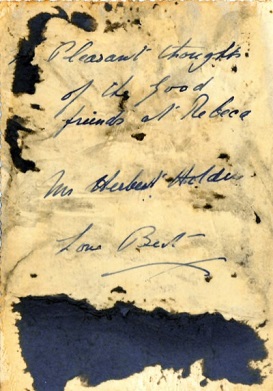 Pleasant thoughts
of the good
friends at Rebeca
Mrs Herbert Holden
Love Bert